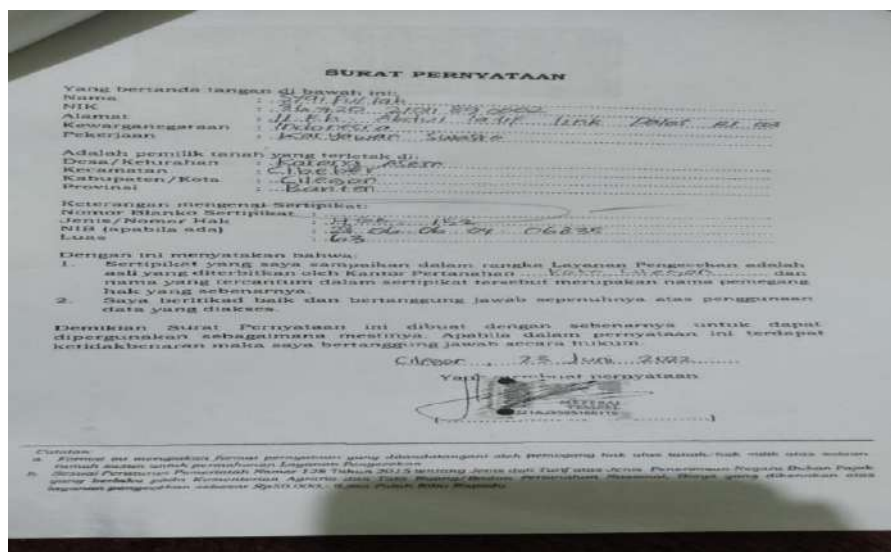 SURAT PERNYATAAN
Yang bertanda tangan di bawah ini:
Nama :
NIK :
Alamat : Jl. Kh. Abdul latif link
Kewarganegaraan : Indonesia
Pekerjaan : Karyawan Swasta
Adalah pemilik tanah yang terletak di:
Desa/Kelurahan : Karang Asem
Kecamatan : Cibeber
Kabupaten/Kota : Cilegon
Provinsi : Banten
Keterangan mengenai Sertipikat:
Nomor Blanko Sertipikat :
Jenis/Nomor Hak :
NIB (apabila ada) : 06835
Luas : 63
Dengan ini menyatakan bahwa:
1. Sertipikat yang saya sampaikan dalam rangka Layanan Pengecekan adalah
asli yang diterbitkan oleh Kantor Pertanahan Kota Cilegon dan
nama yang tercantum dalam sertipikat tersebut merupakan nama pemegang
hak yang sebenarnya.
2. Saya beritikad baik dan bertanggung jawab sepenuhnya atas penggunaan
data yang diakses.
Demikian Surat Pernyataan ini dibuat dengan sebenarnya untuk dapat
dipergunakan sebagaimana mestinya. Apabila dalam pernyataan ini terdapat
ketidakbenaran maka saya bertanggung jawab secara hukum.
Cilegon, 23 Juni 2022
Yang membuat pernyataan
METERAI
TEMPEL
Catatan:
a. Format ini merupakan format pernyataan yang ditandatangani oleh pemegang hak atas tanah/hak milik atas satuan
rumah susun untuk permohonan Layanan Pengecekan.
b. Sesuai Peraturan Pemerintah Nomor 128 Tahun 2015 tentang Jenis dan Tarif atas Jenis Penerimaan Negara Bukan Pajak
yang berlaku pada Kementerian Agraria dan Tata Ruang/Badan Pertanahan Nasional, biaya yang dikenakan atas
layanan pengecekan sebesar Rp50.000,- (Lima Puluh Ribu Rupiah).